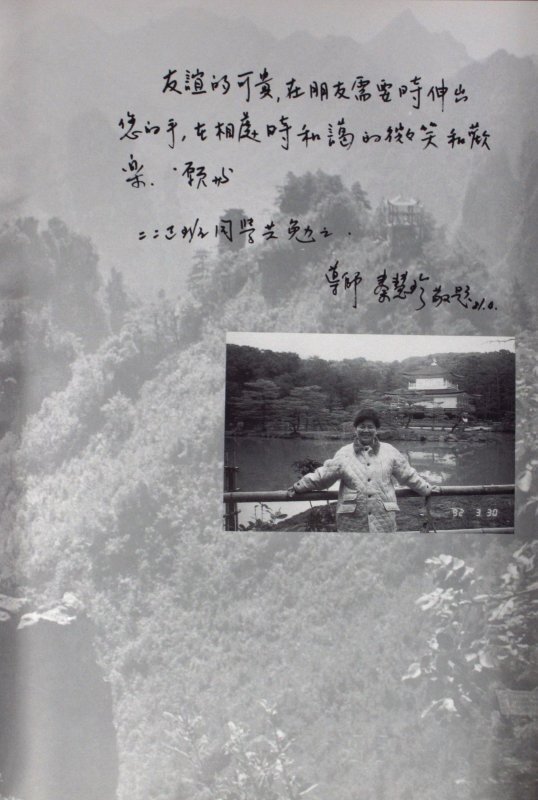 友誼的可貴,在朋友需要時伸出
您的手,在相處時和藹的微笑和歡
樂. 願與
二二 班 同學共勉之.
導師 秦慧珍 敬題
92 3.30